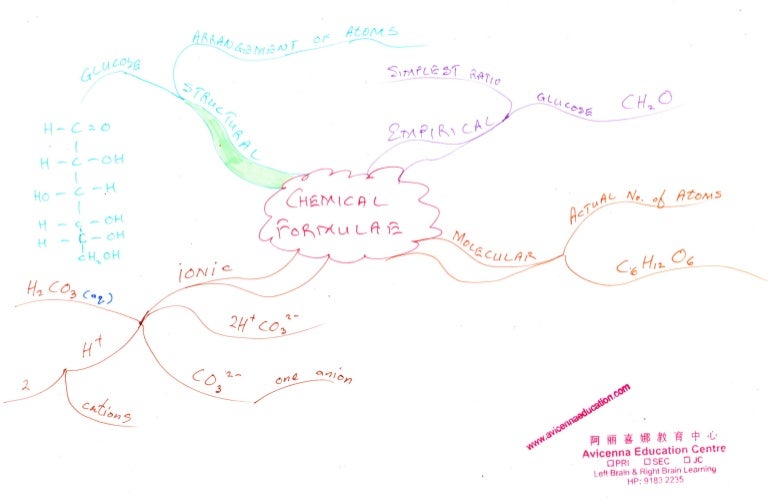 CHEMICAL
FORMULAE
STRUCTURAL
ARRANGEMENT OF ATOMS
GLUCOSE
H – C = O
H – C – OH
HO – C – H
H – C – OH
H – C – OH
CH₂OH
EMPIRICAL
SIMPLEST RATIO
GLUCOSE CH₂O
MOLECULAR
ACTUAL No. of ATOMS
C₆H₁₂O₆
IONIC
H₂CO₃(aq)
2H⁺CO₃²⁻
H⁺
2
cations
CO₃²⁻ one anion
www.avicennaeducation.com
阿丽喜娜教育中心
Avicenna Education Centre
☐PRI ☐SEC ☐JC
Left Brain & Right Brain Learning
HP: 9183 2235